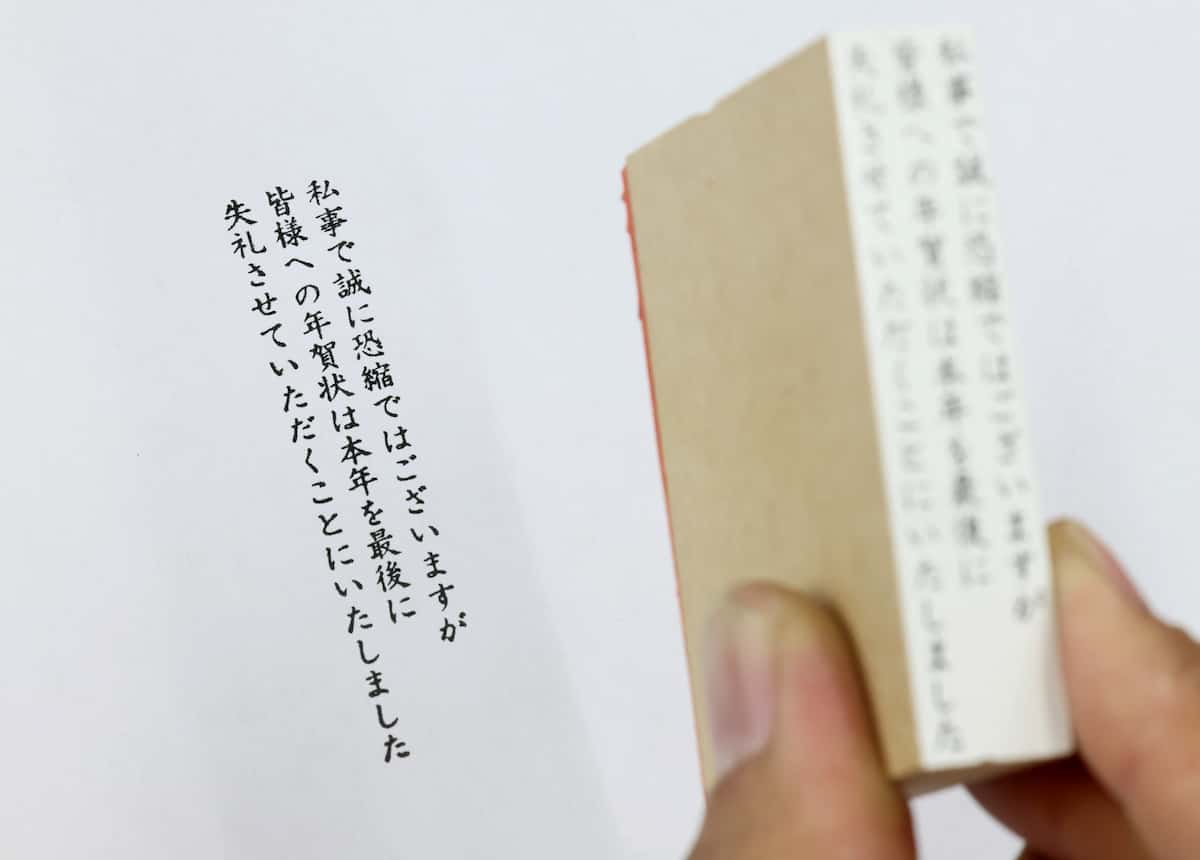 私事で誠に恐縮ではございますが
皆様への年賀状は本年を最後に
失礼させていただくことにいたしました
私事で誠に恐縮ではございますが
皆様への年賀状は本年を最後に
失礼させていただくことにいたしました